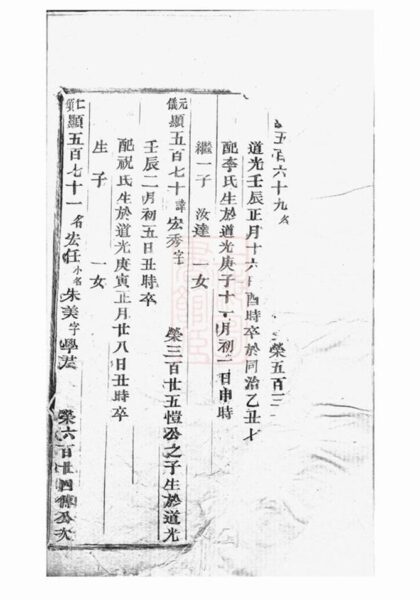 五百六十九名 榮五百三
道光壬辰正月十六日酉時卒於同治乙丑七
配李氏生於道光庚子十月初日申時
繼一子 汝達 一女
元儀 顯五百七十 諱 宏秀 字 榮三百廿五愷公之子生於道光
壬辰二月初五日丑時卒
配祝氏生於道光庚寅正月廿八日丑時卒
生子 一女
仁 顯五百七十一 名 宏任 小名 朱美 字 學 榮六百廿四公次